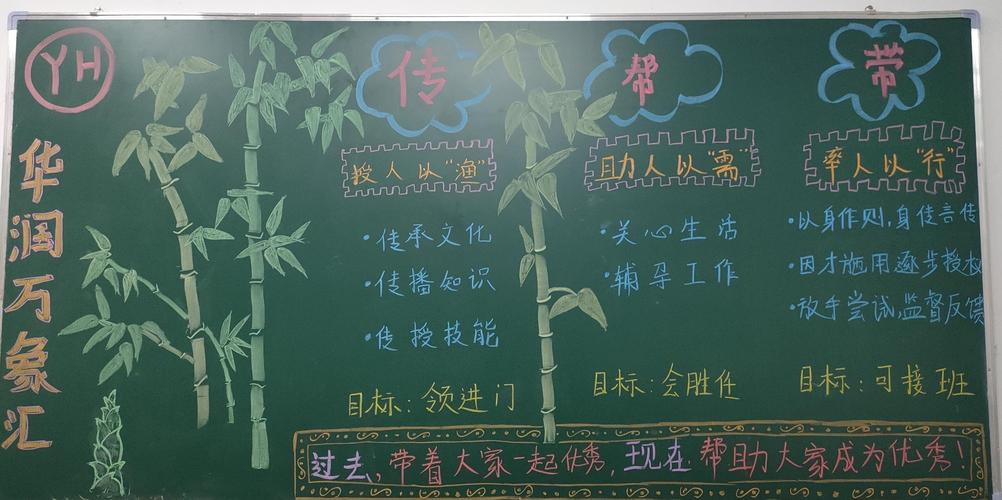 YH
华润万象汇
传
授人以“渔”
·传承文化
·传播知识
·传授技能
目标：领进门
帮
助人以“需”
·关心生活
·辅导工作
目标：会胜任
带
率人以“行”
·以身作则,身传言传
·因才施用逐步授权
·放手尝试,监督反馈
目标：可接班
过去,带着大家一起优秀,现在帮助大家成为优秀!